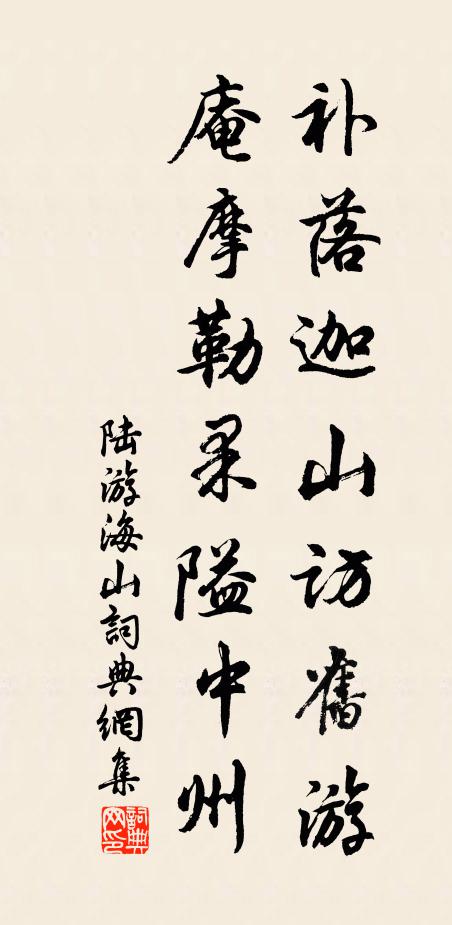 补落迦山访旧游
庵摩勒果隘中州
陆游海山詞典網集
詞典網印